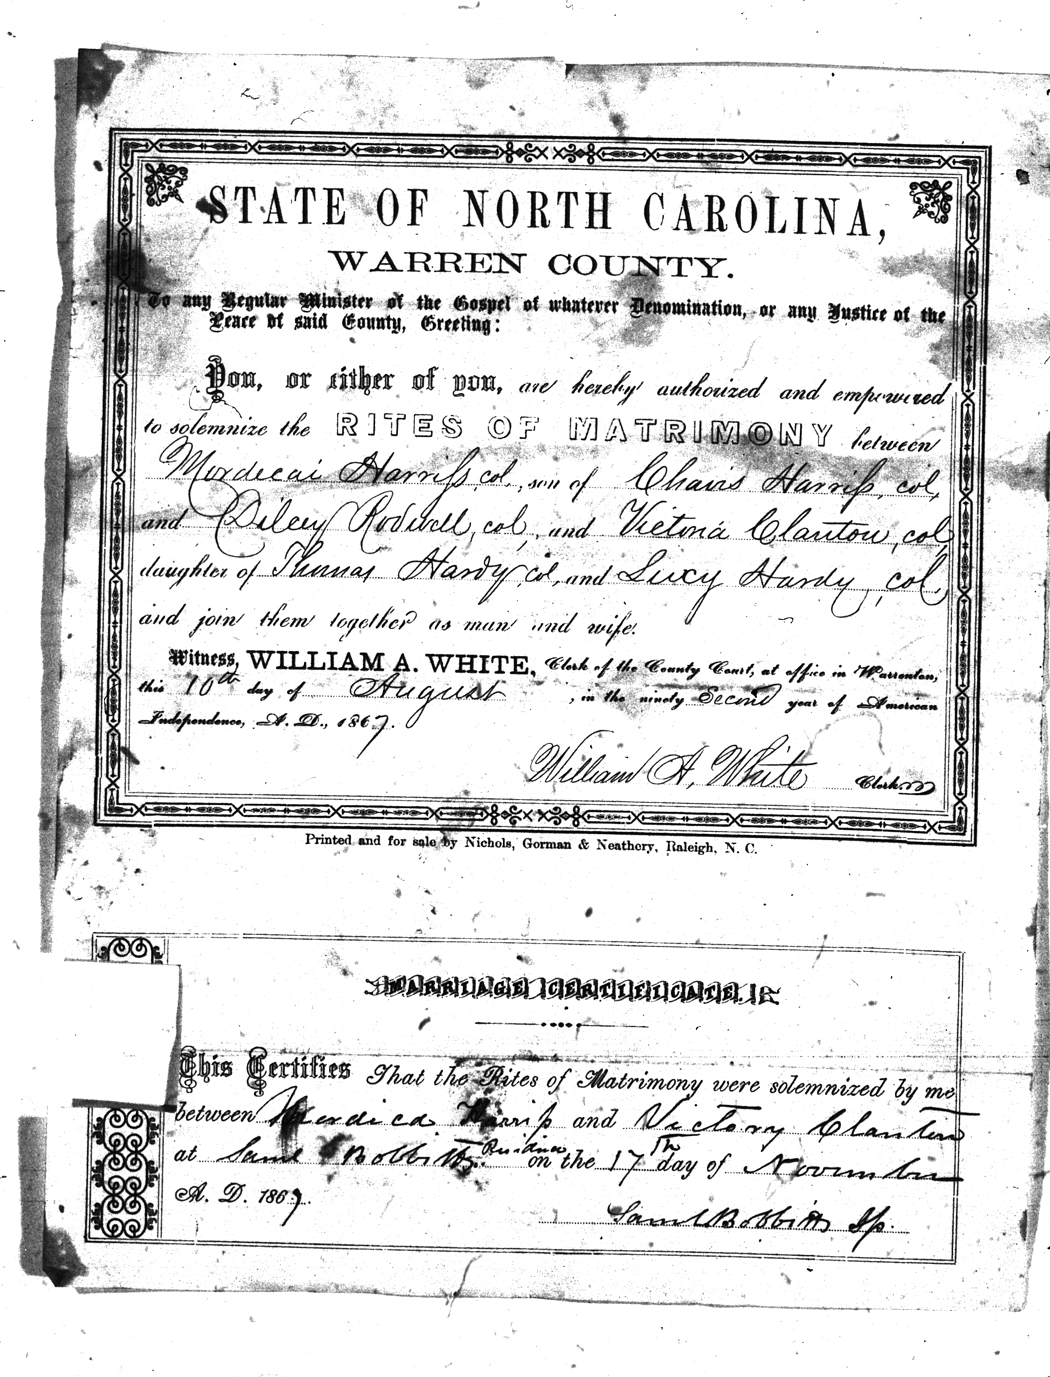 STATE OF NORTH CAROLINA,
WARREN COUNTY.
To any Regular Minister of the Gospel of whatever Denomination, or any Justice of the
Peace of said County, Greeting:
You, or either of you, are hereby authorized and empowered
to solemnize the RITES OF MATRIMONY between
Mordecai Harriss, col., son of Chavis Harriss, col,
and Dilcey Rodwell, col, and Victoria Clanton, col,
daughter of Thomas Hardy col, and Lucy Hardy, col,
and join them together as man and wife.
Witness, WILLIAM A. WHITE, Clerk of the County Court, at office in Warrenton,
this 10th day of August, in the ninety second year of American
Independence, A. D., 1867.
William A. White Clerk.
Printed and for sale by Nichols, Gorman & Neathery, Raleigh, N. C.
MARRIAGE CERTIFICATE.
This Certifies That the Rites of Matrimony were solemnized by me
between Mordica Harriss and Victory Clanton
at Saml Bobbitts Residence on the 17th day of November
A. D. 1867.
Saml Bobbitt Jp.